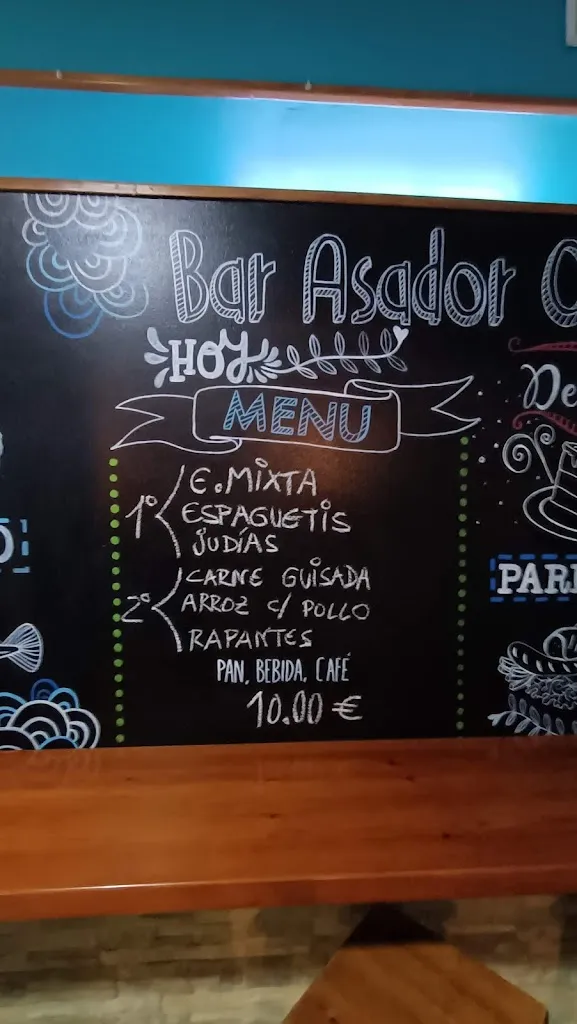 Bar Asador
HOY
MENU
1º
E. MIXTA
ESPAGUETIS
JUDÍAS
2º
CARNE GUISADA
ARROZ C/ POLLO
RAPANTES
PAN, BEBIDA, CAFÉ
10.00 €
De
PARR